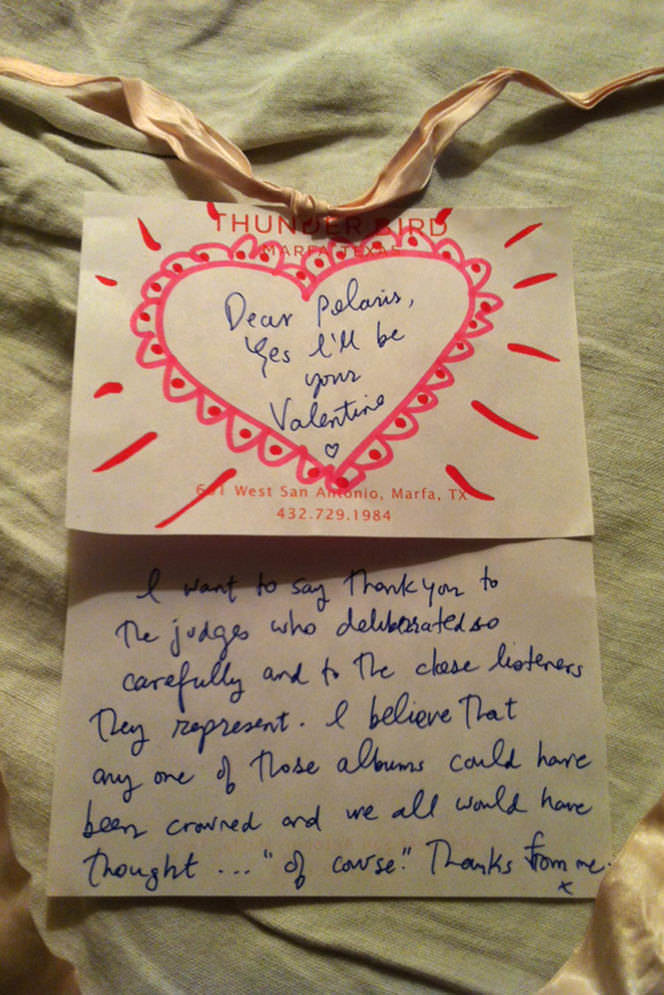 THUNDERBIRD
MARFA TEXAS
Dear Polaris,
Yes I'll be
your
Valentine
601 West San Antonio, Marfa, TX
432.729.1984
I want to say thank you to
the judges who deliberated so
carefully and to the close listeners
they represent. I believe that
any one of those albums could have
been crowned and we all would have
thought ... "of course." Thanks from me.
x